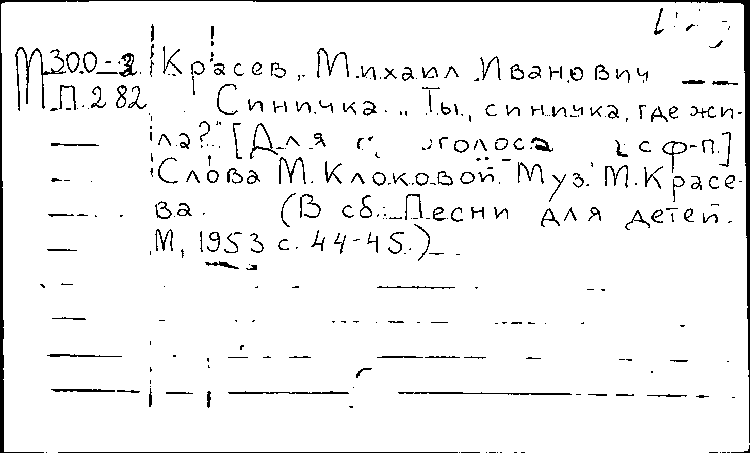 М300-3 Красев, Михаил Иванович
П282 Синичка. "Ты, синичка, где жи-
ла?" [Для с ф-п.]
Слова М. Клоковой. Муз. М. Красе-
ва. (В сб.: Песни для детей.
М, 1953 с. 44-45.)